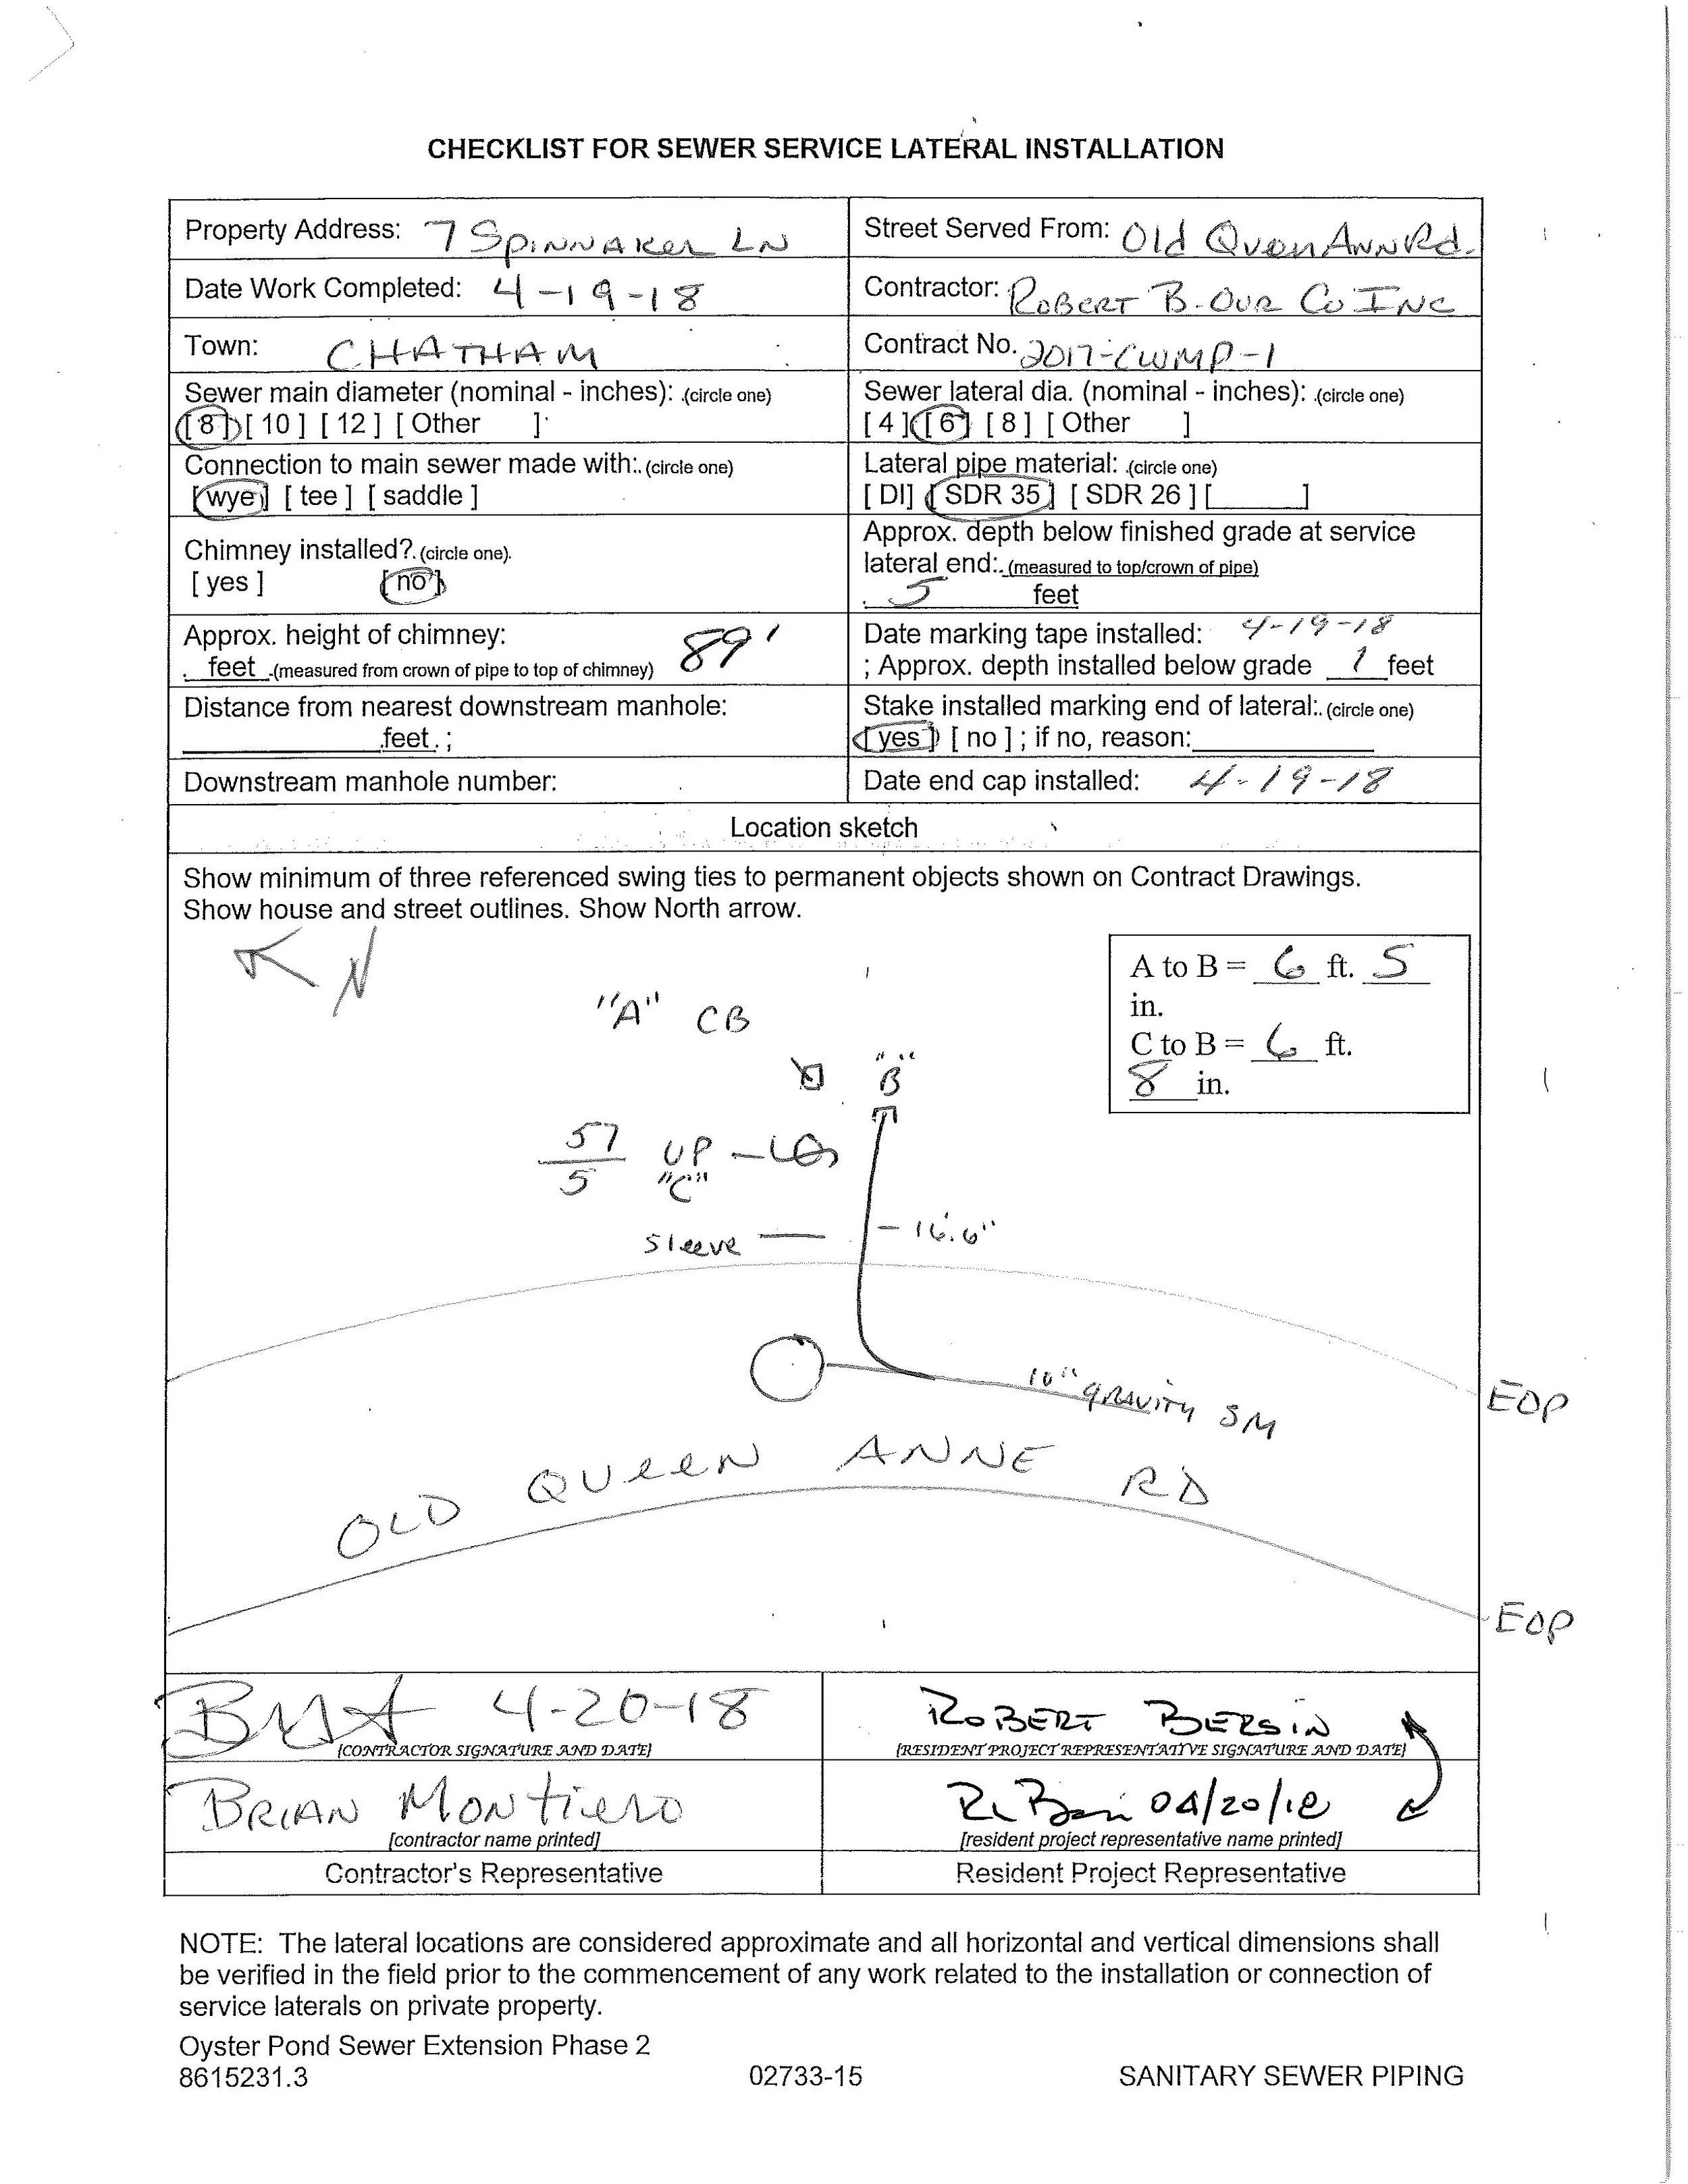 CHECKLIST FOR SEWER SERVICE LATERAL INSTALLATION
Property Address: 7 SPINNAKER LN
Street Served From: Old Queen Ann Rd.
Date Work Completed: 4-19-18
Contractor: ROBERT B. OUR Co INC
Town: CHATHAM
Contract No. 2017-CWMP-1
Sewer main diameter (nominal - inches): (circle one)
[8] [ 10 ] [ 12 ] [ Other ]
Sewer lateral dia. (nominal - inches): (circle one)
[ 4 ] [ 6 ] [ 8 ] [ Other ]
Connection to main sewer made with: (circle one)
[wye] [ tee ] [ saddle ]
Lateral pipe material: (circle one)
[ DI] [ SDR 35 ] [ SDR 26 ] [_____]
Chimney installed? (circle one).
[ yes ] [no]
Approx. depth below finished grade at service
lateral end: (measured to top/crown of pipe)
5 feet
Approx. height of chimney: 89'
feet (measured from crown of pipe to top of chimney)
Date marking tape installed: 4-19-18
; Approx. depth installed below grade 1 feet
Distance from nearest downstream manhole:
____________feet. ;
Stake installed marking end of lateral: (circle one)
[yes] [ no ] ; if no, reason:____________
Downstream manhole number:
Date end cap installed: 4-19-18
Location sketch
Show minimum of three referenced swing ties to permanent objects shown on Contract Drawings.
Show house and street outlines. Show North arrow.
N
A to B = 6 ft. 5
in.
C to B = 6 ft.
8 in.
"A" CB
"B"
57
5
UP
"C"
sleeve
16.6"
10" GRAVITY SM
EOP
OLD QUEEN ANNE RD
EOP
4-20-18
[CONTRACTOR SIGNATURE AND DATE]
ROBERT BERSIN
[RESIDENT PROJECT REPRESENTATIVE SIGNATURE AND DATE]
BRIAN MONTIERO
[contractor name printed]
04/20/18
[resident project representative name printed]
Contractor's Representative
Resident Project Representative
NOTE: The lateral locations are considered approximate and all horizontal and vertical dimensions shall
be verified in the field prior to the commencement of any work related to the installation or connection of
service laterals on private property.
Oyster Pond Sewer Extension Phase 2
8615231.3
02733-15
SANITARY SEWER PIPING